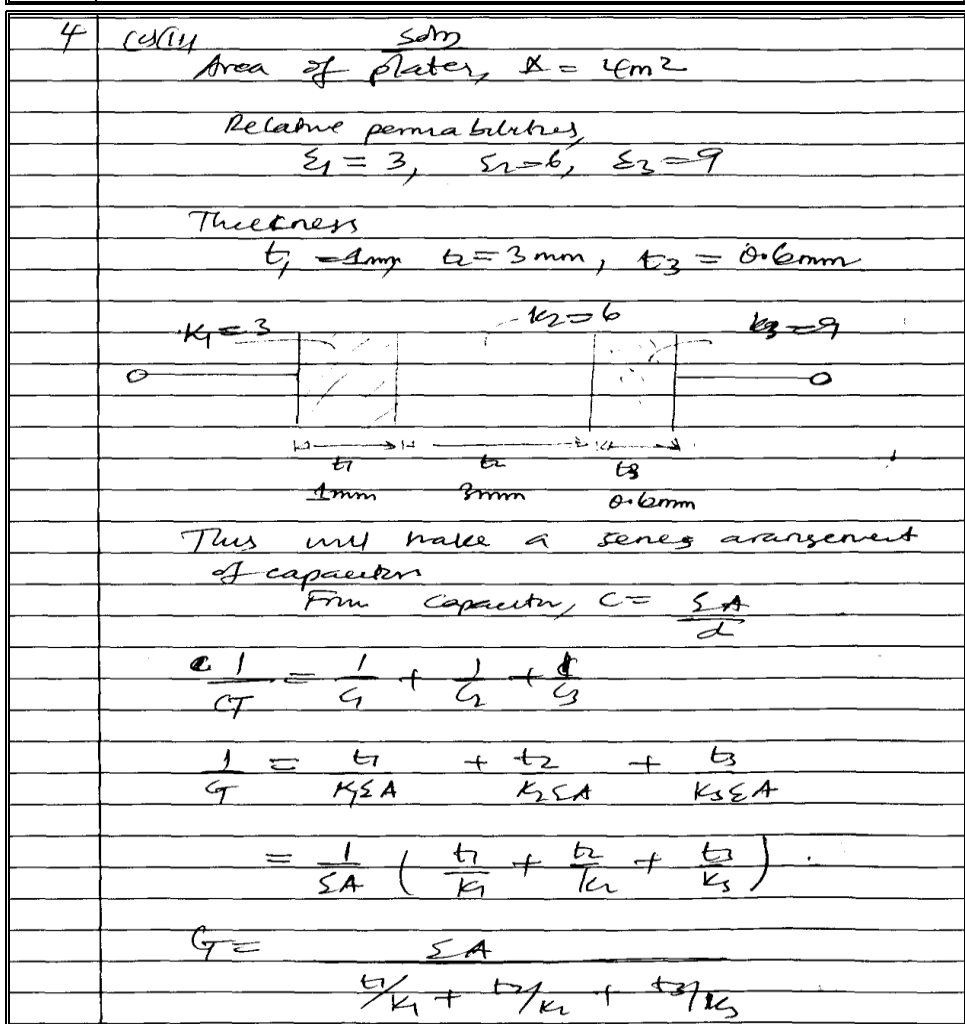 4 (c)(ii) Soln
Area of plates, A = 4m2
Relative permiabilities,
ε1 = 3, ε2=6, ε3=9
Thickness
t1 = 1mm t2 = 3 mm, t3 = 0.6mm
K1=3 K2=6 K3=9
t1 t2 t3
1mm 3mm 0.6mm
This will make a series arangement
of capacitors
From Capacitor, C= εA/d
1/CT = 1/C1 + 1/C2 + 1/C3
1/CT = t1/K1εA + t2/K2εA + t3/K3εA
= 1/εA ( t1/K1 + t2/K2 + t3/K3 )
CT = εA / (t1/K1 + t2/K2 + t3/K3)